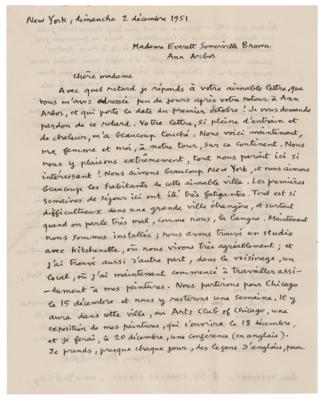 New York, dimanche 2 décembre 1951
Madame Everett Somerville Brown
Ann Arbor
Chère madame
Avec quel retard je réponds à votre aimable lettre, que
vous m'avez adressée peu de jours après votre retour à Ann
Arbor, et qui porte la date du premier octobre! Je vous demande
pardon de ce retard. Votre lettre, si pleine d'entrain et
de chaleur, m'a beaucoup touché. Nous voici maintenant,
ma femme et moi, à notre tour, sur ce continent. Nous
nous y plaisons extrêmement, tout nous paraît ici si
intéressant! Nous aimons beaucoup New York, et nous aimons
beaucoup les habitants de cette aimable ville. Les premières
semaines de séjour ici ont été très fatigantes. Tout est si
difficultueux dans une grande ville étrangère, et surtout
quand on parle très mal, comme nous, la langue. Maintenant
nous sommes installés; nous avons trouvé un studio
avec kitchenette, où nous vivons très agréablement; et
j'ai trouvé aussi d'autre part, dans le voisinage, un
local, où j'ai maintenant commencé à travailler assi-
-dument à mes peintures. Nous partirons pour Chicago
le 15 décembre et nous y resterons une semaine. Il y
aura dans cette ville, au Arts Club of Chicago, une
exposition de mes peintures, qui s'ouvrira le 18 décembre,
et je ferai, le 20 décembre, une conférence (en anglais).
Je prends, presque chaque jour, des leçons d'anglais, pour